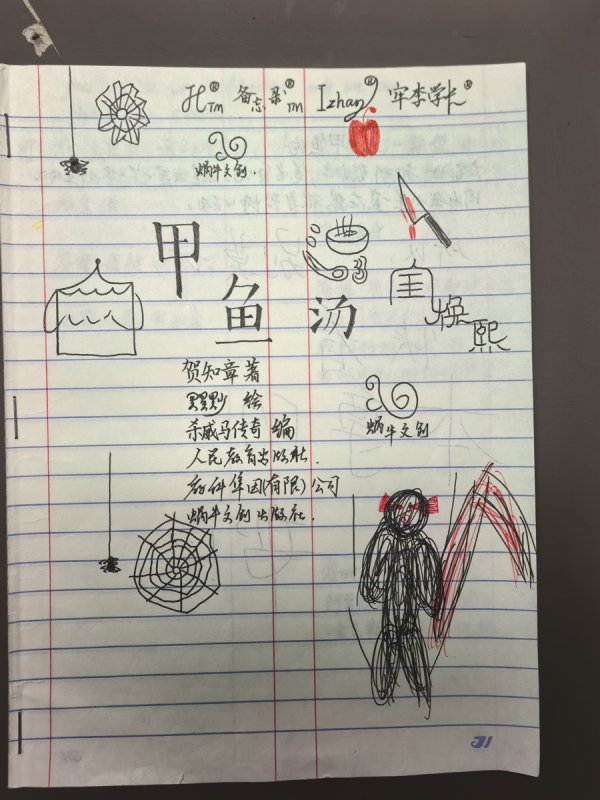 TM 备忘录® TM Izhang® 牢李学长®
蜗牛文创.
甲鱼汤
宣焕熙
贺知章 著
绘
杀威马传奇 编
蜗牛文创
人民教育出版社.
教科集团(有限)公司
蜗牛文创出版社.